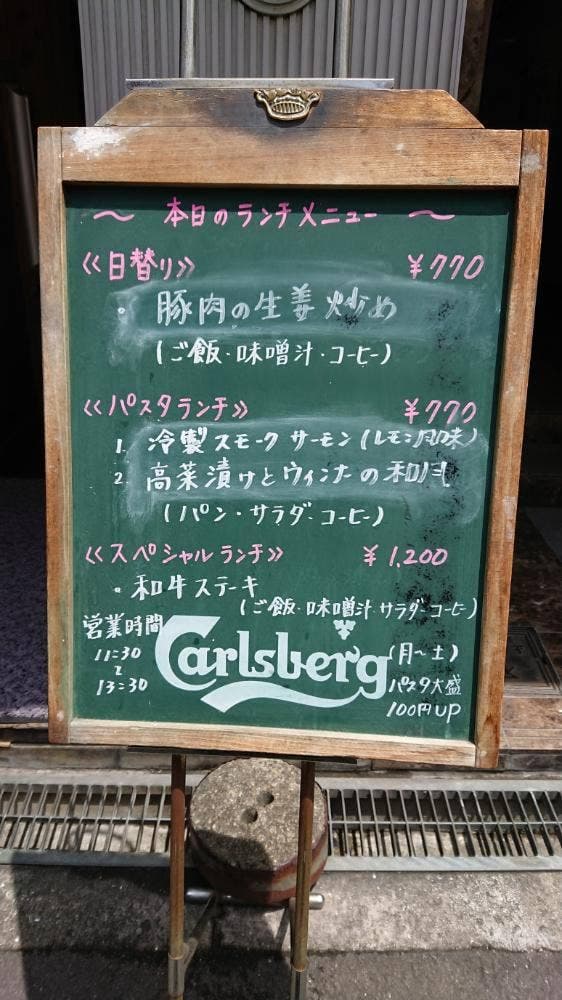 〜 本日のランチメニュー 〜
《日替り》 ¥770
・豚肉の生姜炒め
(ご飯・味噌汁・コーヒー)
《パスタランチ》 ¥770
1. 冷製スモークサーモン(レモン風味)
2. 高菜漬けとウィンナーの和風
(パン・サラダ・コーヒー)
《スペシャルランチ》 ¥1,200
・和牛ステーキ
(ご飯・味噌汁・サラダ・コーヒー)
営業時間
11:30
〜
13:30
Carlsberg
(月〜土)
パスタ大盛
100円UP